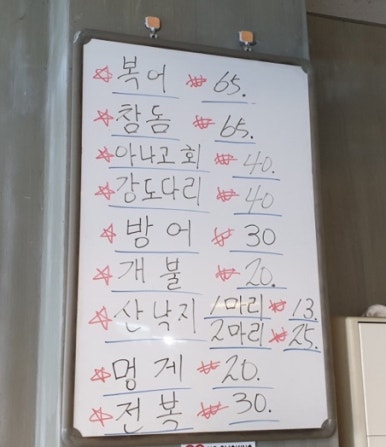 ☆복어 ₩65.
☆참돔 ₩65.
☆아나고회 ₩40.
☆강도다리 ₩40
☆방어 ₩30
☆개불 ₩20.
☆산낙지 1마리 ₩13.
2마리 ₩25.
☆멍게 ₩20.
☆전복 ₩30.